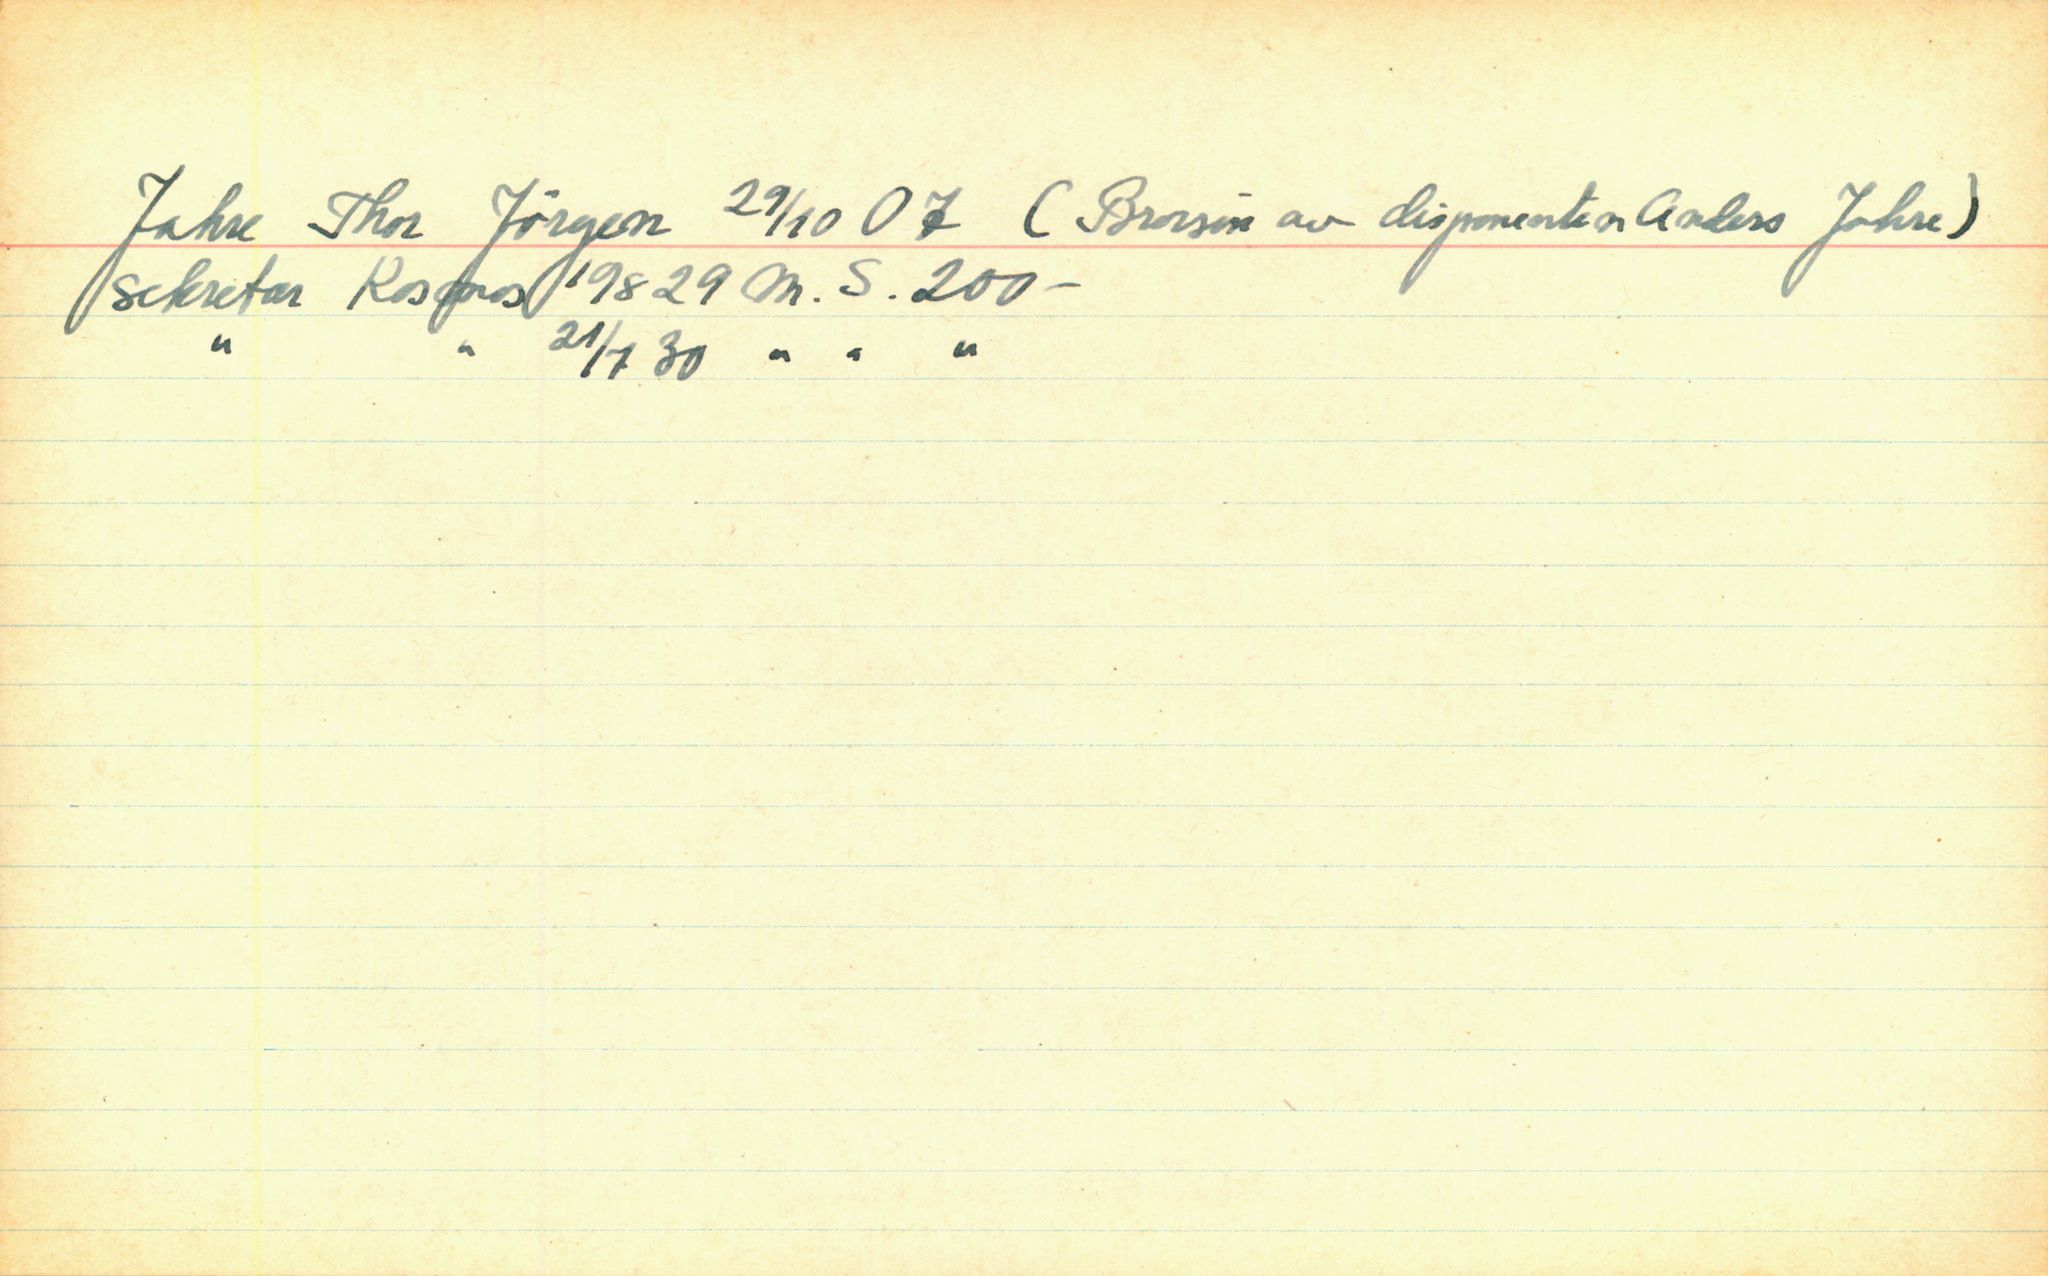 Jahre Thor Jörgen 29/10 07 (Brorsön av disponenten Anders Jahre)
sekretær Kosmos 19829 M. S. 200-
" " 21/7 30 " " "